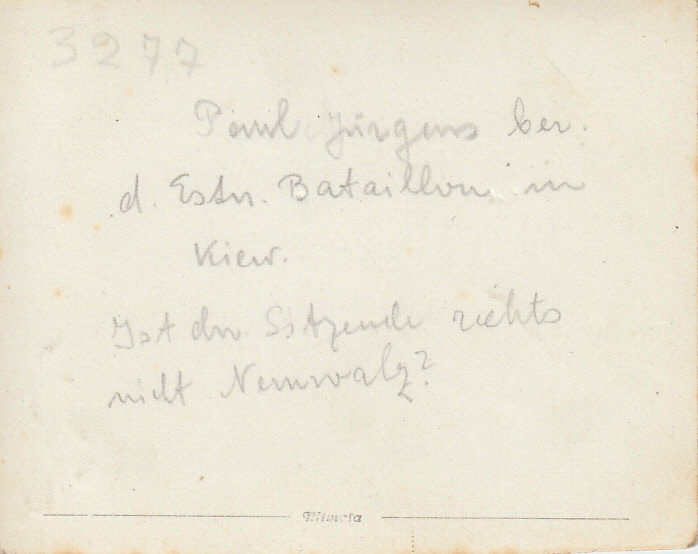 3277
Paul Jürgens bei
d. Estn. Bataillon in
Kiew.
Ist der Sitzende rechts
nicht Nemwalz?
Mimosa